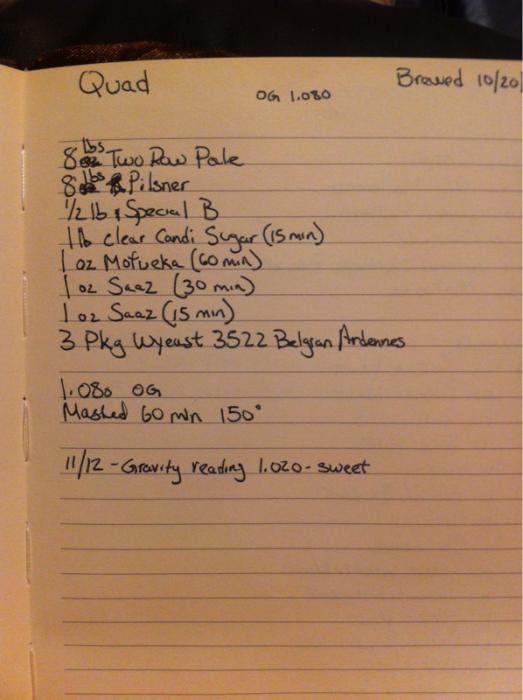 Quad
OG 1.080
Brewed 10/20
8 lbs Two Row Pale
8 lbs Pilsner
1/2 lb Special B
1 lb clear Candi Sugar (15 min)
1 oz Motueka (60 min)
1 oz Saaz (30 min)
1 oz Saaz (15 min)
3 Pkg Wyeast 3522 Belgian Ardennes
1.080 OG
Mashed 60 min 150°
11/12 - Gravity reading 1.020 - sweet